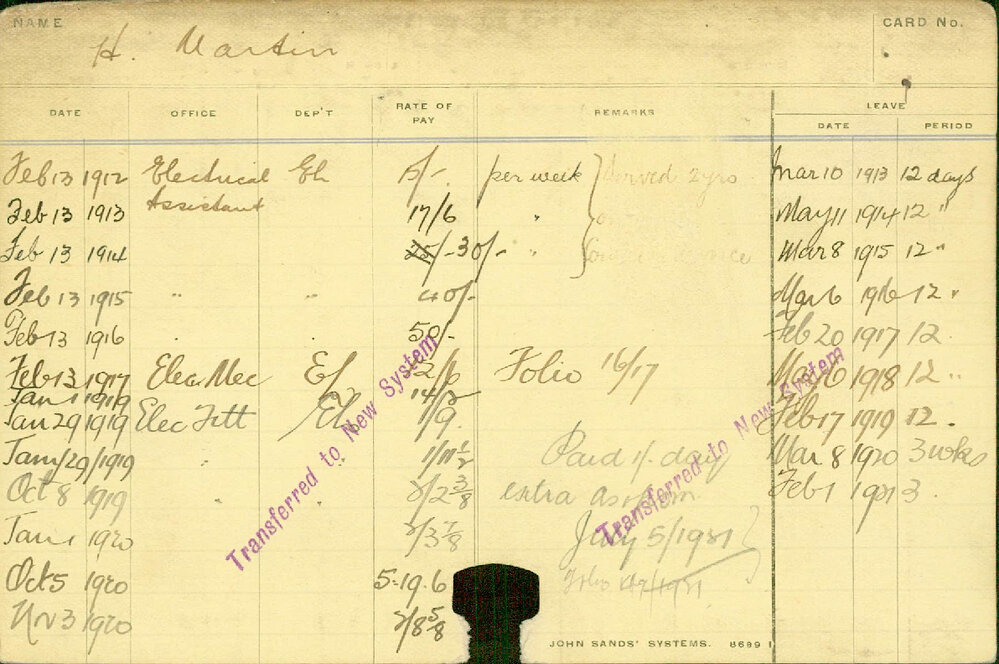 NAME
H. Martin
CARD No.
DATE OFFICE DEP'T RATE OF PAY REMARKS LEAVE
DATE PERIOD
Feb 13 1912 Electrical El 15/-. per week Served 2 yrs Mar 10 1913 12 days
Feb 13 1913 Assistant 17/6 " May 11 1914 12 "
Feb 13 1914 25/- 30/- " Mar 8 1915 12 "
Feb 13 1915 " " 40/- Mar 6 1916 12 "
Feb 13 1916 50/- Feb 20 1917 12
Feb 13 1917 Elec Mec El 12/6 Folio 16/17 Mar 6 1918 12 "
Jan 1 1919 14/2
Jan 29 1919 Elec Fitt El 1/9 Feb 17 1919 12
Jany 29/1919 " " 1/11 1/2 Paid 1/- day Mar 8 1920 3 wks
Oct 8 1919 2/2 3/8 extra as from Feb 1 1921 3
Jan 1 1920 2/3 7/8 July 5/1921
Oct 5 1920 5-19.6 Folio 1921
Nov 3 1920 2/8 5/8
Transferred to New System
Transferred to New System
JOHN SANDS' SYSTEMS. 8699